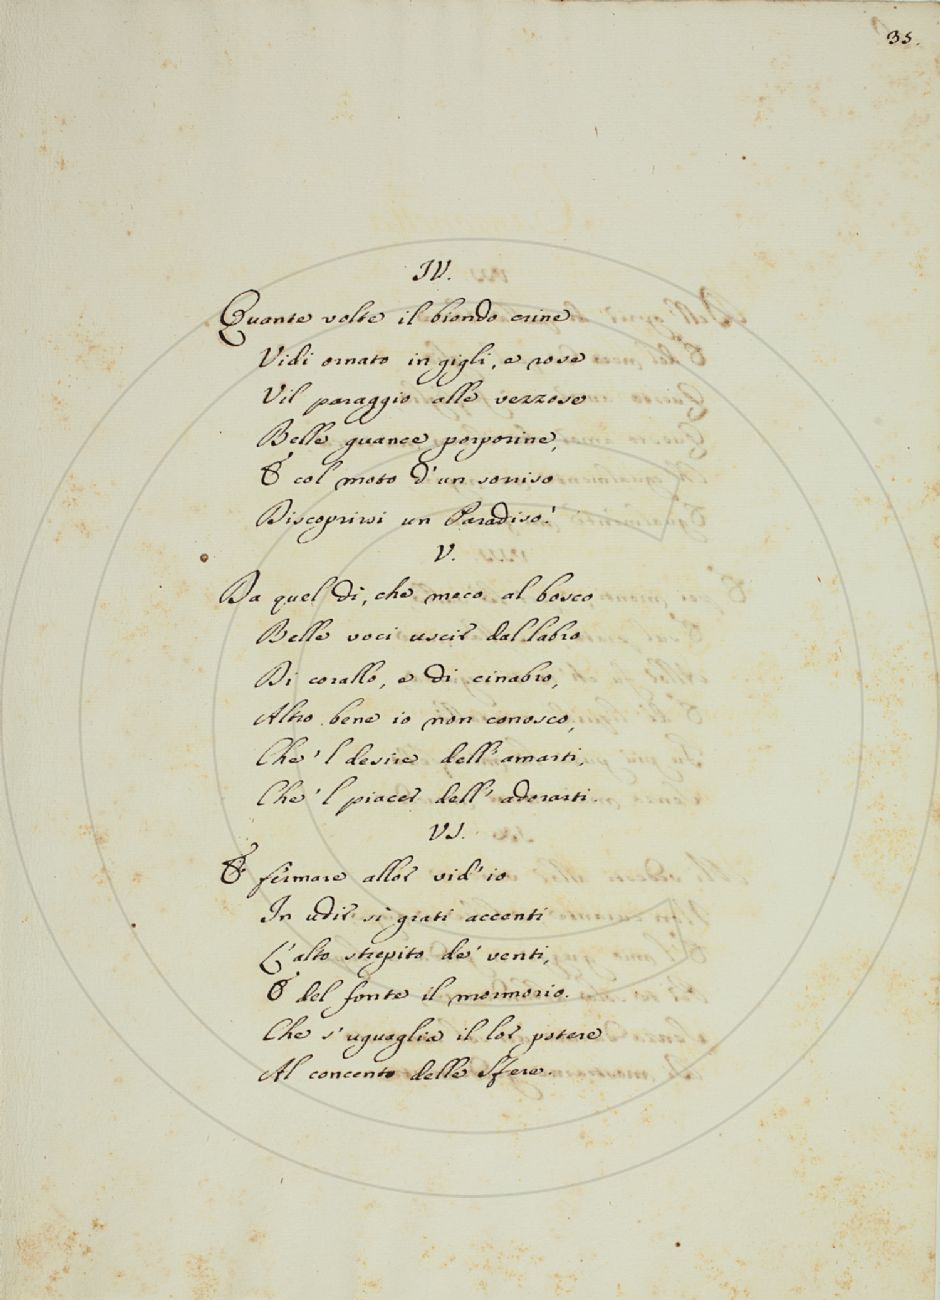 35.
IV.
Quante volte il biondo crine
Vidi ornato in gigli, e rose
Vil paraggio alle vezzose
Belle guance porporine,
E col moto d'un sorriso
Discoprirsi un Paradiso!
V.
Da quel dì, che meco al bosco
Belle voci uscir dal labro
Di corallo, e di cinabro,
Altro bene io non conosco,
Che 'l desire dell' amarti,
Che 'l piacer dell' adorarti.
VI.
E fermare allor vid' io
In udir si grati accenti
L' alto strepito de' venti,
E del fonte il mormorio.
Che s' uguaglia il lor potere
Al concento delle Sfere.